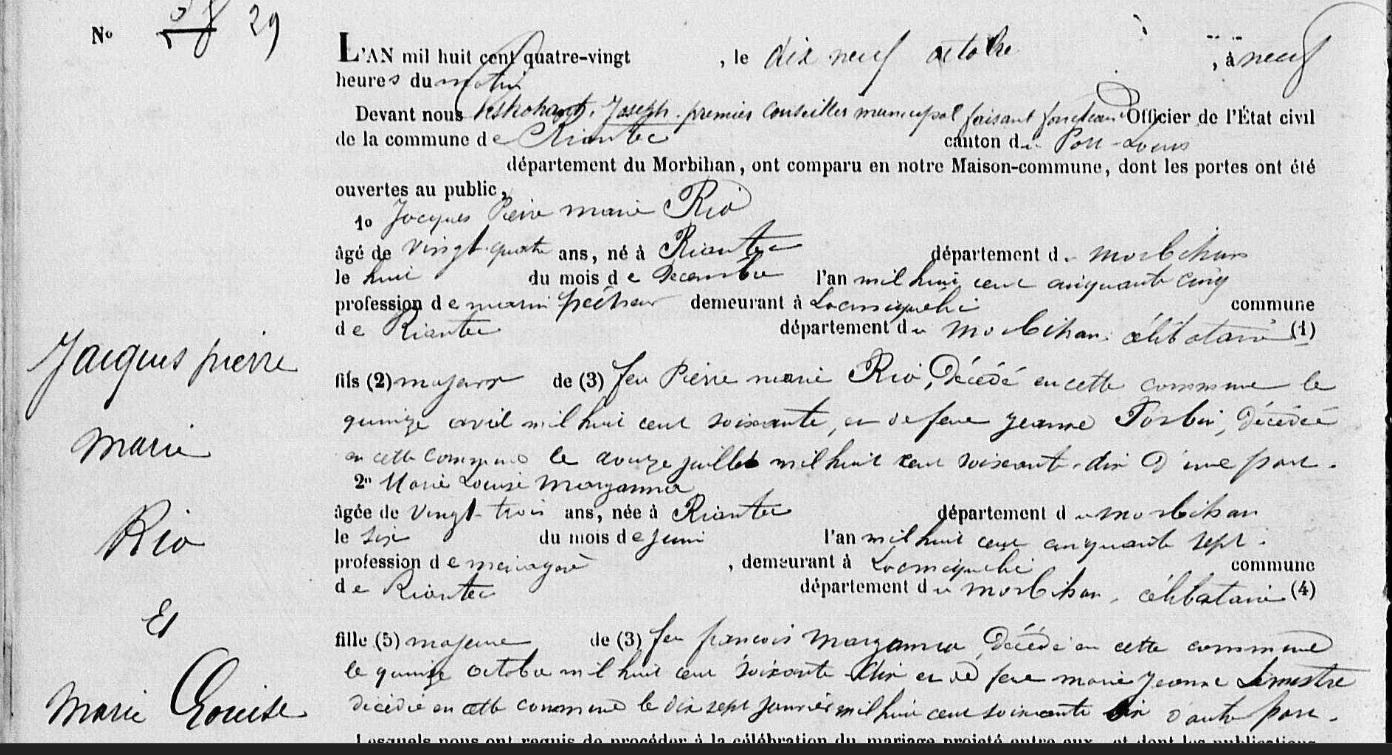 N° 58 29
L'AN mil huit cent quatre-vingt , le dix neuf octobre , à neuf
heures du matin
Devant nous Joseph premier conseiller municipal faisant fonctions Officier de l'État civil
de la commune de Riantec canton du Port-Louis
département du Morbihan, ont comparu en notre Maison-commune, dont les portes ont été
ouvertes au public,
1° Jacques Pierre marie Rio
âgé de vingt-quatre ans, né à Riantec département du morbihan
le huit du mois de Décembre l'an mil huit cent cinquante cinq
profession de marin pêcheur demeurant à Locmiquélic commune
de Riantec département du morbihan célibataire (1)
fils (2) majeur de (3) feu Pierre marie Rio, Décédé en cette commune le
quinze avril mil huit cent soixante, et de feue Jeanne , décédée
en cette commune le douze juillet mil huit cent soixante-dix D'une part.
2° Marie Louise
âgée de vingt-trois ans, née à Riantec département du morbihan
le six du mois de Juin l'an mil huit cent cinquante sept.
profession de ménagère , demeurant à Locmiquélic commune
de Riantec département du morbihan, célibataire (4)
fille (5) majeure de (3) feu françois , Décédé en cette commune
le quinze octobre mil huit cent soixante dix et de feue marie Jeanne Lemestre
décédée en cette commune le dix sept Janvier mil huit cent soixante dix d'autre part.
Lesquels nous ont requis de procéder à la célébration du mariage projeté entre eux, et dont les publications
Jacques pierre
marie
Rio
Et
Marie Louise